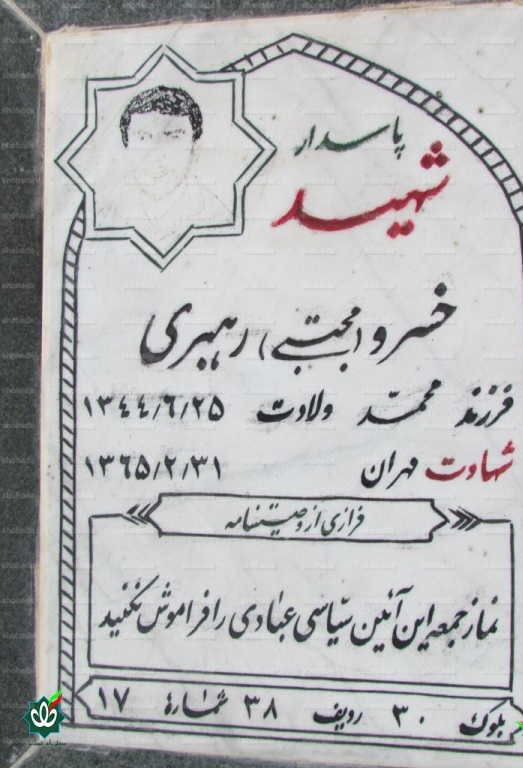 پاسدار
شهید
خسرو (مجتبی) رهبری
فرزند محمّد ولادت ۱۳٤٤/٦/۲۵
شهادت مهران ۱۳٦۵/۲/۳۱
فرازی از وصیتنامه
نماز جمعه این آئین سیّاسی عبادی را فراموش نکنید
بلوک ۳۰ ردیف ۳۸ شمارهٔ ۱۷